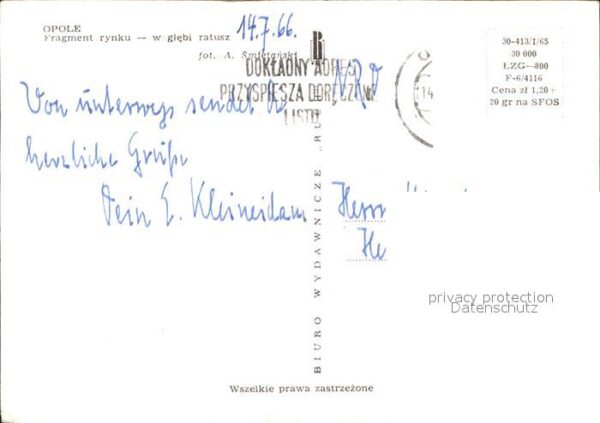 OPOLE
Fragment rynku — w głębi ratusz
fot. A. Śmietański
14.7.66.
DOKŁADNY ADRES
PRZYSPIESZA DORĘCZENIE
LISTU
NRD
14
30-413/I/65
30 000
ŁZG—800
F-6/4116
Cena zł 1,20 +
20 gr na SFOS
Von unterwegs sendet Dir
herzliche Grüße
Dein E. Kleineidam
Herrn
He
BIURO WYDAWNICZE RU
privacy protection
Datenschutz
Wszelkie prawa zastrzeżone